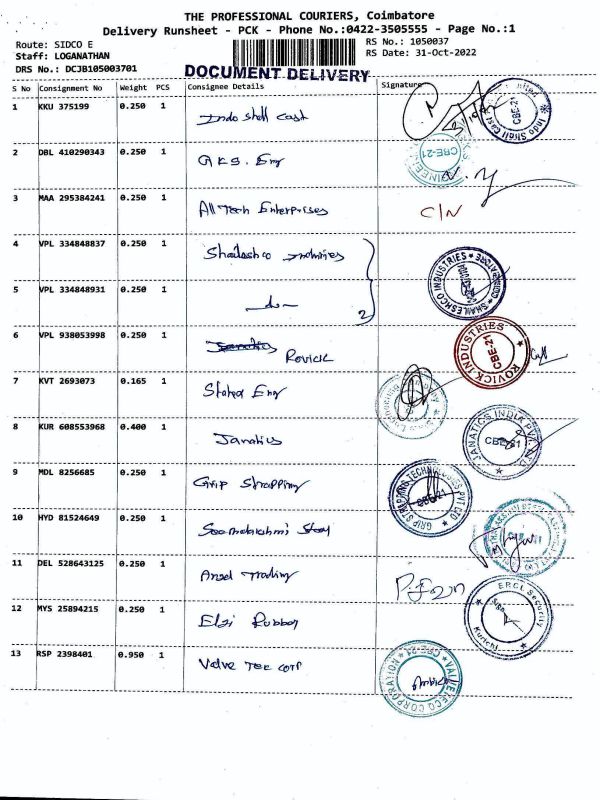 THE PROFESSIONAL COURIERS, Coimbatore
Delivery Runsheet - PCK - Phone No.:0422-3505555 - Page No.:1
Route: SIDCO E
RS No.: 1050037
Staff: LOGANATHAN
RS Date: 31-Oct-2022
DRS No.: DCJB105003701
DOCUMENT DELIVERY
S No Consignment No Weight PCS Consignee Details Signature
1 KKU 375199 0.250 1 Indo Shell Cast
Indo Shell Cast CBE-21
2 DBL 410290343 0.250 1 A.K.S. Eng
CBE-21
3 MAA 295384241 0.250 1 All Tech Enterprises C/N
4 VPL 334848837 0.250 1 Shaileshco Industries
SHAILESHCO INDUSTRIES
5 VPL 334848931 0.250 1 -do- 2
6 VPL 938053998 0.250 1 Rovick
ROVICK INDUSTRIES CBE-21
7 KVT 2693073 0.165 1 Eng
8 KUR 608553968 0.400 1 Janatics
JANATICS INDIA PVT. LTD CBE-21
9 MDL 8256685 0.250 1 Grip Strapping
GRIP STRAPPING TECHNOLOGIES PVT LTD CBE-21
10 HYD 81524649 0.250 1
11 DEL 528643125 0.250 1 Angel Trading
12 MYS 25894215 0.250 1 Elgi Rubber
ERCL Security Kurichi
13 RSP 2398401 0.950 1 Valve Tec Corp
VALVETECQ CORPORATION CBE-21